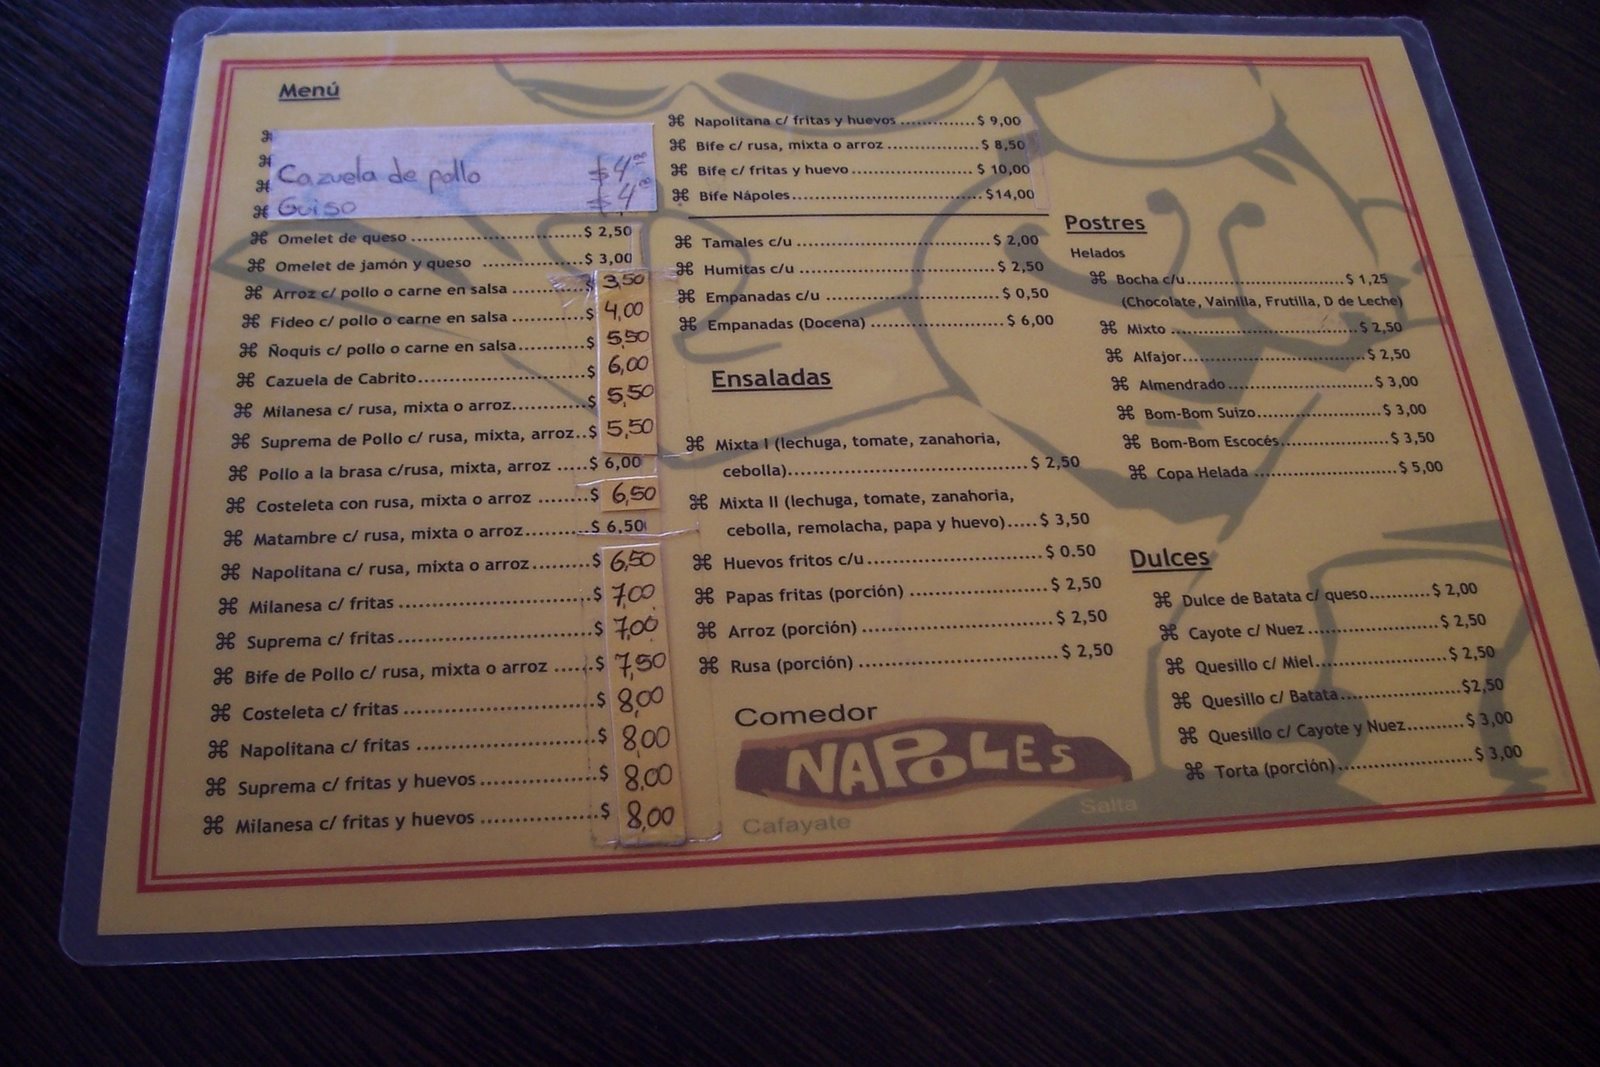 Menú
Cazuela de pollo $4ºº
Guiso $4ºº
⌘ Omelet de queso ........................... $ 2,50
⌘ Omelet de jamón y queso ................ $ 3,00
⌘ Arroz c/ pollo o carne en salsa ............ $ 3,50
⌘ Fideo c/ pollo o carne en salsa ............ $ 4,00
⌘ Ñoquis c/ pollo o carne en salsa............ $ 5,50
⌘ Cazuela de Cabrito............................ $ 6,00
⌘ Milanesa c/ rusa, mixta o arroz............ $ 5,50
⌘ Suprema de Pollo c/ rusa, mixta, arroz.. $ 5,50
⌘ Pollo a la brasa c/rusa, mixta, arroz ..... $ 6,00
⌘ Costeleta con rusa, mixta o arroz ........ $ 6,50
⌘ Matambre c/ rusa, mixta o arroz.......... $ 6,50
⌘ Napolitana c/ rusa, mixta o arroz......... $ 6,50
⌘ Milanesa c/ fritas ............................. $ 7,00
⌘ Suprema c/ fritas.............................. $ 7,00
⌘ Bife de Pollo c/ rusa, mixta o arroz ...... $ 7,50
⌘ Costeleta c/ fritas ............................ $ 8,00
⌘ Napolitana c/ fritas ........................... $ 8,00
⌘ Suprema c/ fritas y huevos .................. $ 8,00
⌘ Milanesa c/ fritas y huevos .................. $ 8,00
⌘ Napolitana c/ fritas y huevos .............. $ 9,00
⌘ Bife c/ rusa, mixta o arroz ................. $ 8,50
⌘ Bife c/ fritas y huevo ....................... $ 10,00
⌘ Bife Nápoles................................... $14,00
⌘ Tamales c/u .................................. $ 2,00
⌘ Humitas c/u .................................. $ 2,50
⌘ Empanadas c/u .............................. $ 0,50
⌘ Empanadas (Docena) ...................... $ 6,00
Ensaladas
⌘ Mixta I (lechuga, tomate, zanahoria,
cebolla)........................................ $ 2,50
⌘ Mixta II (lechuga, tomate, zanahoria,
cebolla, remolacha, papa y huevo)..... $ 3,50
⌘ Huevos fritos c/u ............................ $ 0.50
⌘ Papas fritas (porción) ...................... $ 2,50
⌘ Arroz (porción) .............................. $ 2,50
⌘ Rusa (porción) ............................... $ 2,50
Comedor
NAPOLES
Salta
Cafayate
Postres
Helados
⌘ Bocha c/u............................ $ 1,25
(Chocolate, Vainilla, Frutilla, D de Leche)
⌘ Mixto ................................ $ 2,50
⌘ Alfajor................................ $ 2,50
⌘ Almendrado......................... $ 3,00
⌘ Bom-Bom Suizo..................... $ 3,00
⌘ Bom-Bom Escocés.................. $ 3,50
⌘ Copa Helada ........................ $ 5,00
Dulces
⌘ Dulce de Batata c/ queso.......... $ 2,00
⌘ Cayote c/ Nuez ..................... $ 2,50
⌘ Quesillo c/ Miel..................... $ 2,50
⌘ Quesillo c/ Batata................... $2,50
⌘ Quesillo c/ Cayote y Nuez......... $ 3,00
⌘ Torta (porción)...................... $ 3,00